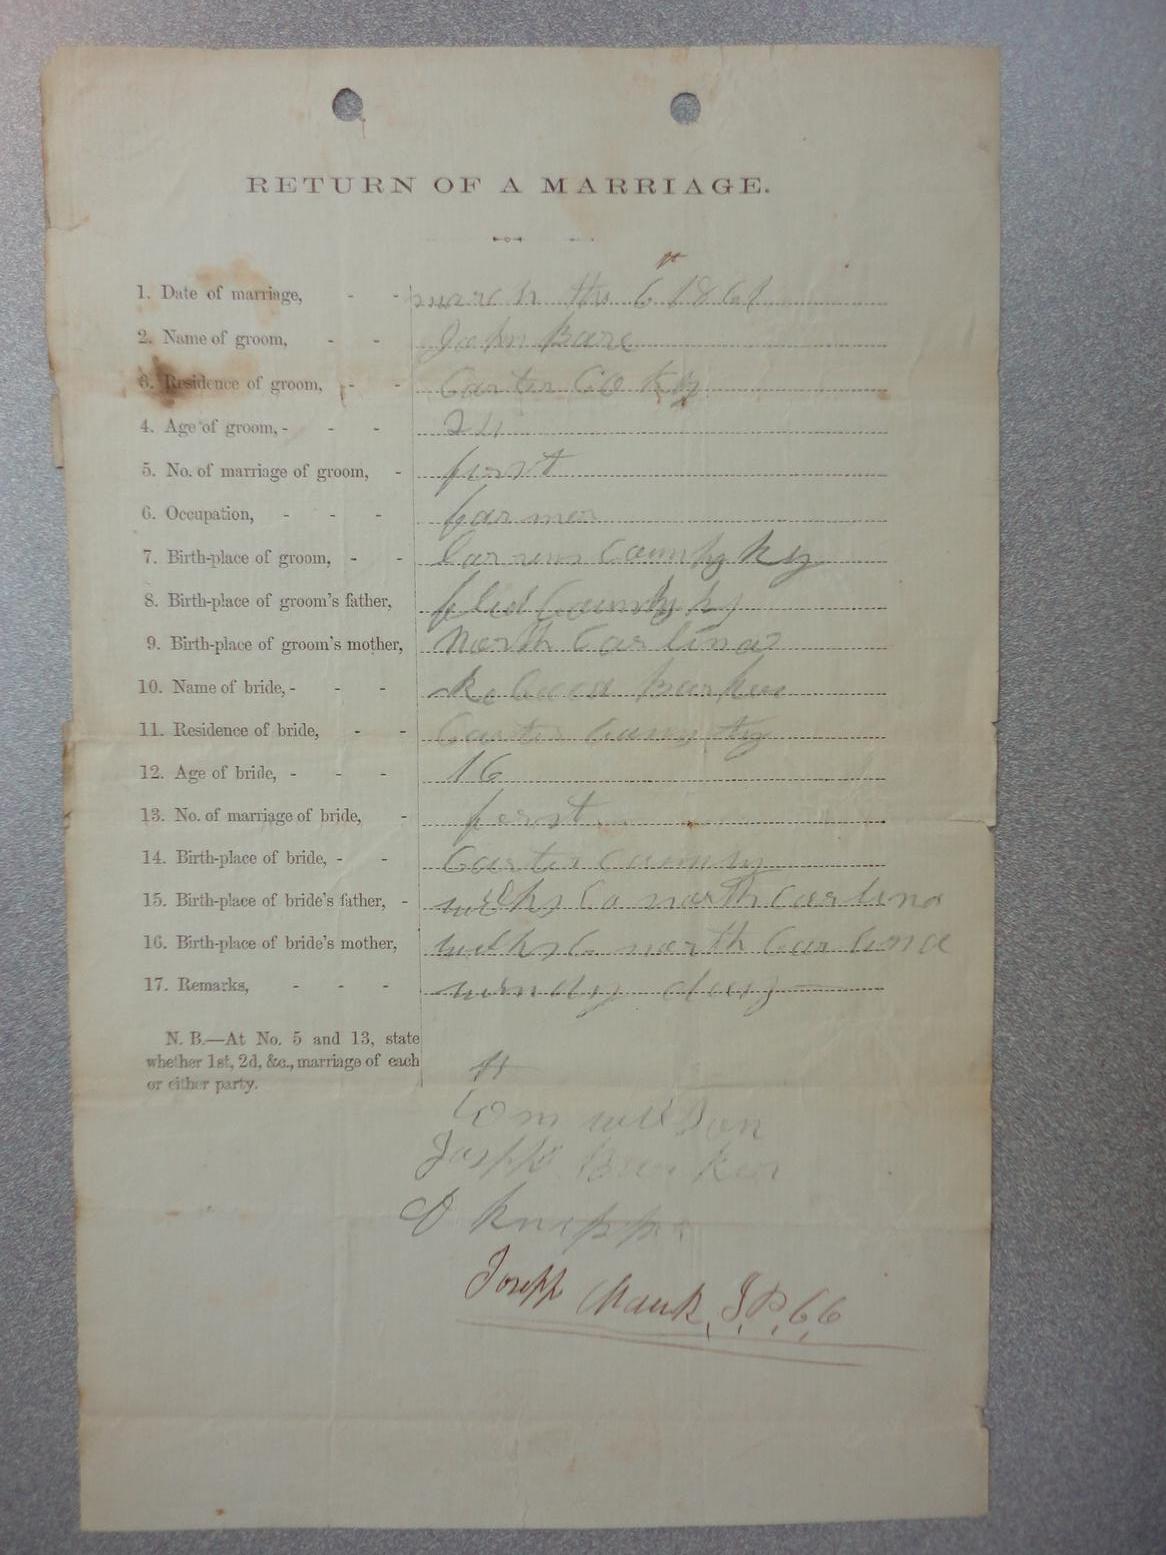 RETURN OF A MARRIAGE.
1. Date of marriage, - - march the 6 1861
2. Name of groom, - - John Bare
3. Residence of groom, - - Carter Co Ky
4. Age of groom, - - -
5. No. of marriage of groom, - first
6. Occupation, - - - farmer
7. Birth-place of groom, - - County Ky
8. Birth-place of groom's father, floid County Ky
9. Birth-place of groom's mother, North Carlina
10. Name of bride, - - - Barker
11. Residence of bride, - - Carter County
12. Age of bride, - - - 16
13. No. of marriage of bride, - ferst
14. Birth-place of bride, - - Carter County
15. Birth-place of bride's father, - wilks Co north Carlina
16. Birth-place of bride's mother, wilks C north Carlina
17. Remarks, - - - day
N. B.—At No. 5 and 13, state
whether 1st, 2d, &c., marriage of each
or either party.
willson
Barker
Joseph Mauk, J, P, C, C